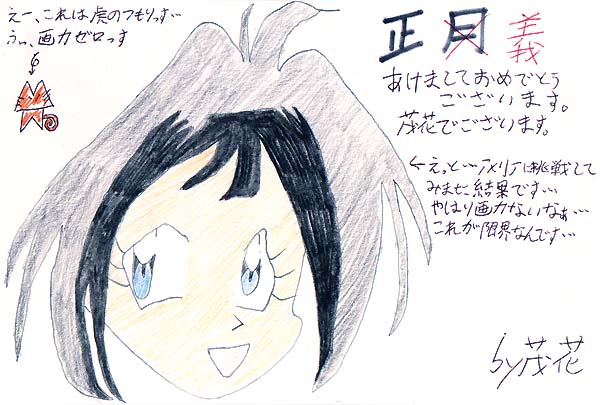 えー、これは虎のつもりっす…
うぅ、画力ゼロっす
正月義
あけましておめでとう
ございます。
茂花でございます。
くえっと…アメリアに挑戦して
みました結果です…
やはり画力ないなぁ…
これが限界なんです…
by茂花